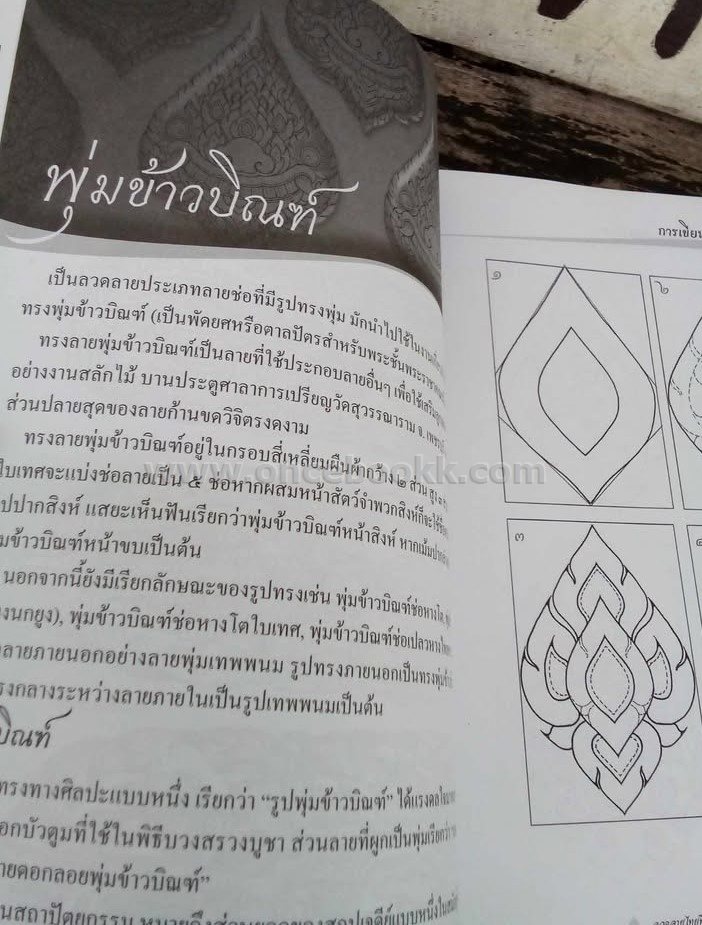 พุ่มข้าวบิณฑ์
เป็นลวดลายประเภทลายช่อที่มีรูปทรงพุ่ม มักนำไปใช้ในงาน
ทรงพุ่มข้าวบิณฑ์ (เป็นพัดยศหรือตาลปัตรสำหรับพระชั้นพระราชาคณะ
ทรงลายพุ่มข้าวบิณฑ์เป็นลายที่ใช้ประกอบลายอื่นๆ เพื่อใช้เสริม
อย่างงานสลักไม้ บานประตูศาลาการเปรียญวัดสุวรรณาราม จ. เพชรบุรี
ส่วนปลายสุดของลายก้านขดวิจิตรงดงาม
ทรงลายพุ่มข้าวบิณฑ์อยู่ในกรอบสี่เหลี่ยมผืนผ้ากว้าง ๒ ส่วน สูง ๓
ใบเทศจะแบ่งช่อลายเป็น ๕ ช่อหากผสมหน้าสัตว์จำพวกสิงห์ก็จะใช้
ปปากสิงห์ แสยะเห็นฟันเรียกว่าพุ่มข้าวบิณฑ์หน้าสิงห์ หากเม้มปาก
มข้าวบิณฑ์หน้าขบเป็นต้น
นอกจากนี้ยังมีเรียกลักษณะของรูปทรงเช่น พุ่มข้าวบิณฑ์ช่อหางโต
งนกยูง), พุ่มข้าวบิณฑ์ช่อหางโตใบเทศ, พุ่มข้าวบิณฑ์ช่อเปลวหาง
ลายภายนอกอย่างลายพุ่มเทพพนม รูปทรงภายนอกเป็นทรงพุ่ม
รงกลางระหว่างลายภายในเป็นรูปเทพพนมเป็นต้น
บิณฑ์
ทรงทางศิลปะแบบหนึ่ง เรียกว่า “รูปพุ่มข้าวบิณฑ์” ได้แรงดลใจ
อกบัวตูมที่ใช้ในพิธีบวงสรวงบูชา ส่วนลายที่ผูกเป็นพุ่มเรียกว่า
ายดอกลอยพุ่มข้าวบิณฑ์”
นสถาปัตยกรรม หมายถึงส่วนยอดของสถูปเจดีย์แบบหนึ่งใน
www.oncebookk.com
การเขียน
๑
๒
๓
๔